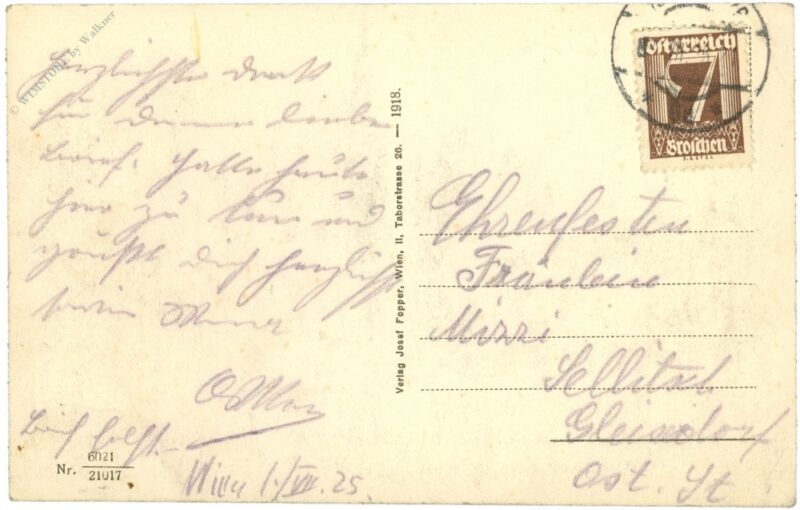 © WIMSTORE by Walkner
Herzlichsten Dank
für Deinen lieben
Brief. Hatte heute
hier zu tun und
grüßt Dich herzlichst
Brief folgt.
Wien 1./VII. 25.
Nr. 6021
21017
Verlag Josef Popper, Wien, II, Taborstrasse 20. — 1918.
Österreich
7
Groschen
Ehrenfesten
Fräulein
Mizzi
Gleisdorf
Ost. St